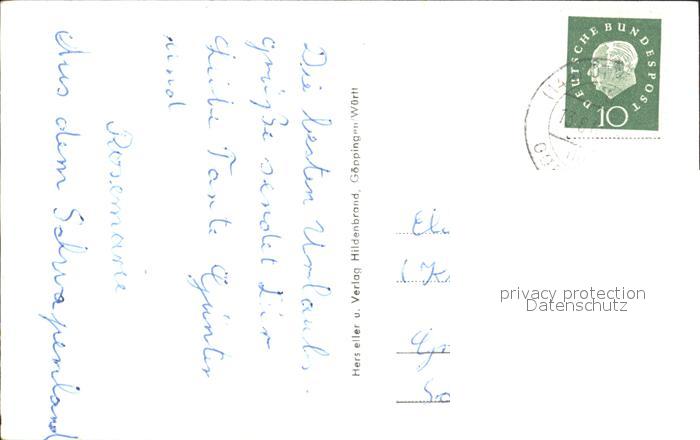 Die besten Urlaubs-
grüße sendet Dir
Liebe Tante Günter
und
Rosemarie
Aus dem Schwabenland
Hersteller u. Verlag Hildenbrand, Göppingen/Württ
DEUTSCHE BUNDESPOST
10
privacy protection
Datenschutz